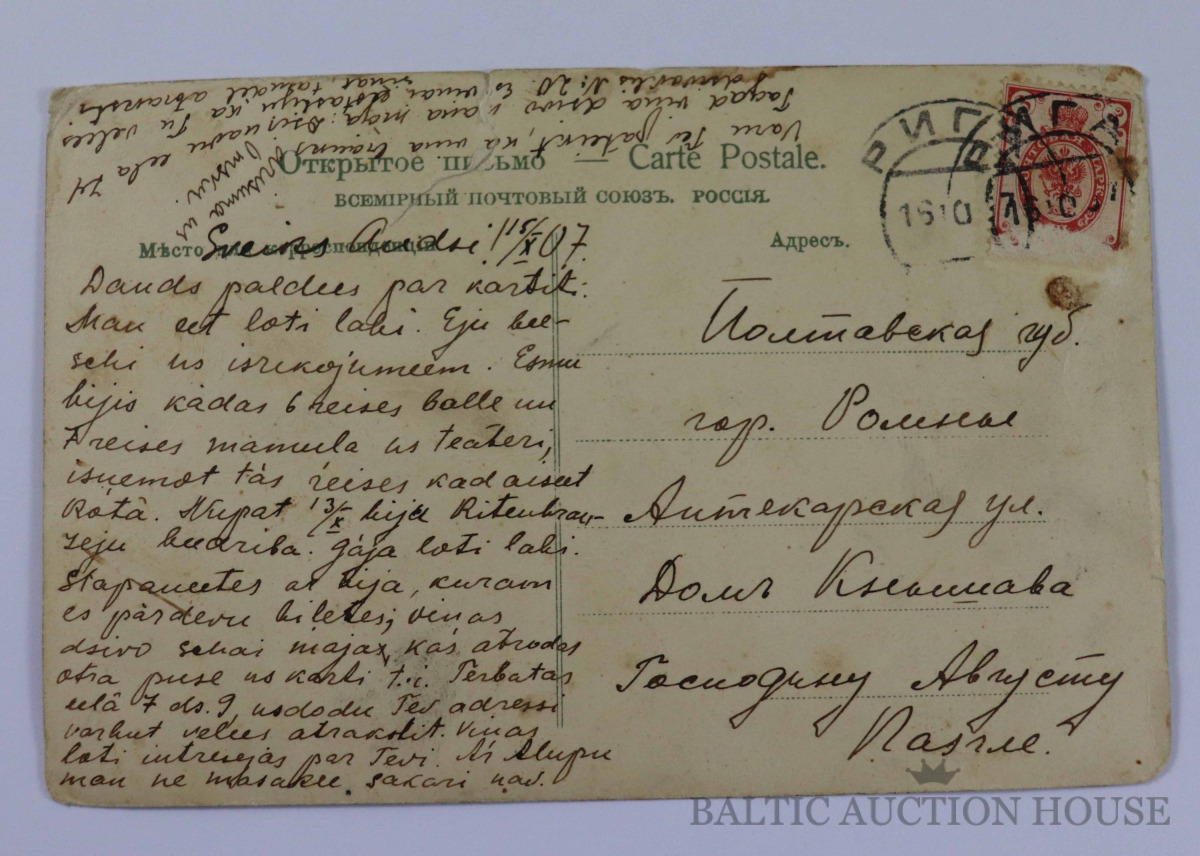 Открытое письмо — Carte Postale.
ВСЕМІРНЫЙ ПОЧТОВЫЙ СОЮЗЪ. РОССІЯ.
Мѣсто для корреспонденціи
Адресъ.
РИГА
РИГА
16 10
Sveiks 15/X 07.
Daudz paldees par kartiti.
Man eet loti labi. Eju bee-
schi us isrikojumeem. Esmu
bijis kādas 6 reises balle un
7 reises us teāteri,
isnemot tās reises kad aiseet
Rotā. Nupat 13/X bija Ritenbrau-
zeju beedriba. Gāja loti labi.
ar bija, kuram
es pārdevu biletes; vinas
dsivo schai mājā, kas atrodas
otra puse us karti t.i. Terbatas
eelā 7 ds. 9, usdodu Tev adressi
varbut velees atrakstit. Vinas
loti intresejas par Tevi. Ar
man ne masakee sakari nav.
Varu Tev pateikt, ka vina
Tagad vina dsivo eela 74
dsivoklis №: 20. Es vinai
Полтавская губ.
гор. Ромны
Аптекарская ул.
Домъ
Господину Августу
BALTIC AUCTION HOUSE